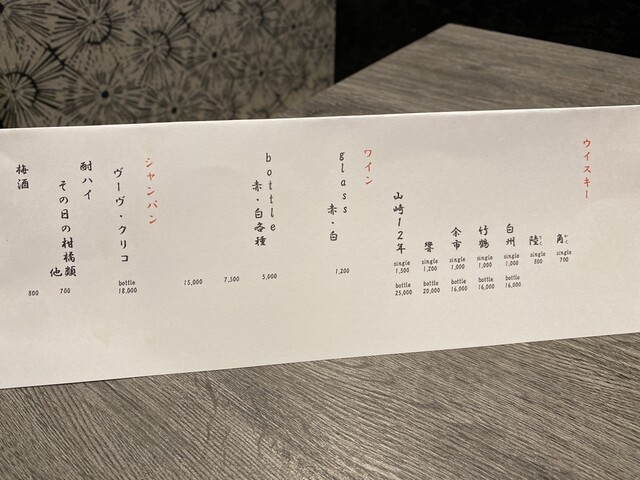 ウイスキー
角 かく single 700
陸 りく single 800
白州 single 1,000 bottle 16,000
竹鶴 single 1,000 bottle 16,000
余市 single 1,000 bottle 16,000
響 single 1,200 bottle 20,000
山崎12年 single 1,500 bottle 25,000
ワイン
glass 赤・白 1,200
bottle 赤・白各種 5,000
7,500
15,000
シャンパン
ヴーヴ・クリコ bottle 18,000
酎ハイ
その日の柑橘類 他 700
梅酒 800